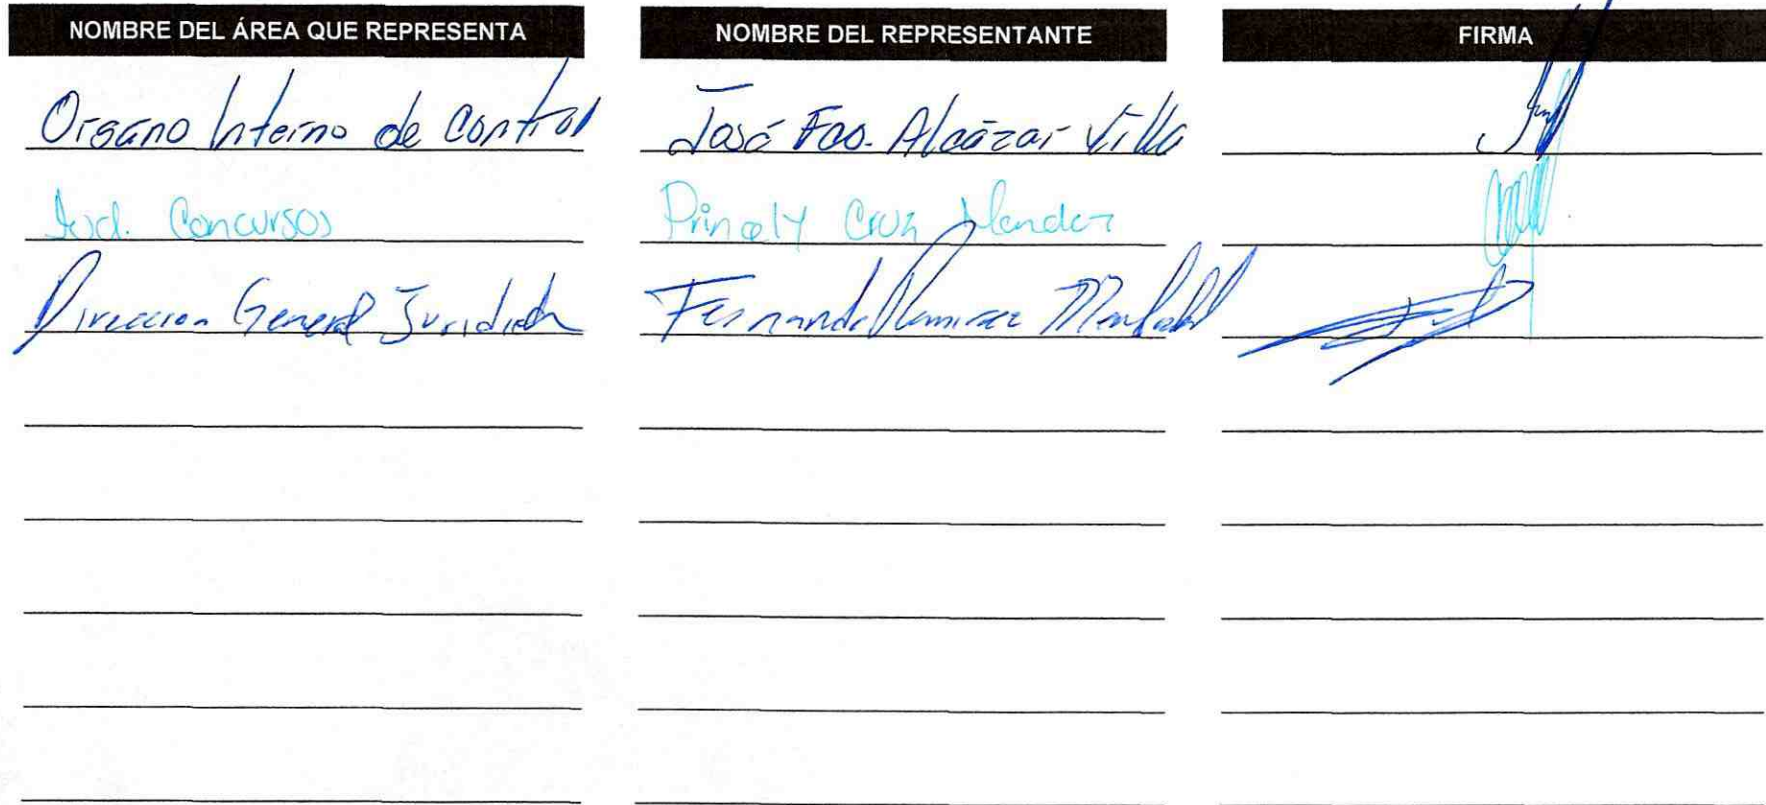 NOMBRE DEL ÁREA QUE REPRESENTA NOMBRE DEL REPRESENTANTE FIRMA
Organo Interno de Control José Fco. Alcázar Villa
Jud. Concursos Princely Cruz Mendez
Direccion General Juridica Fernando Ramirez